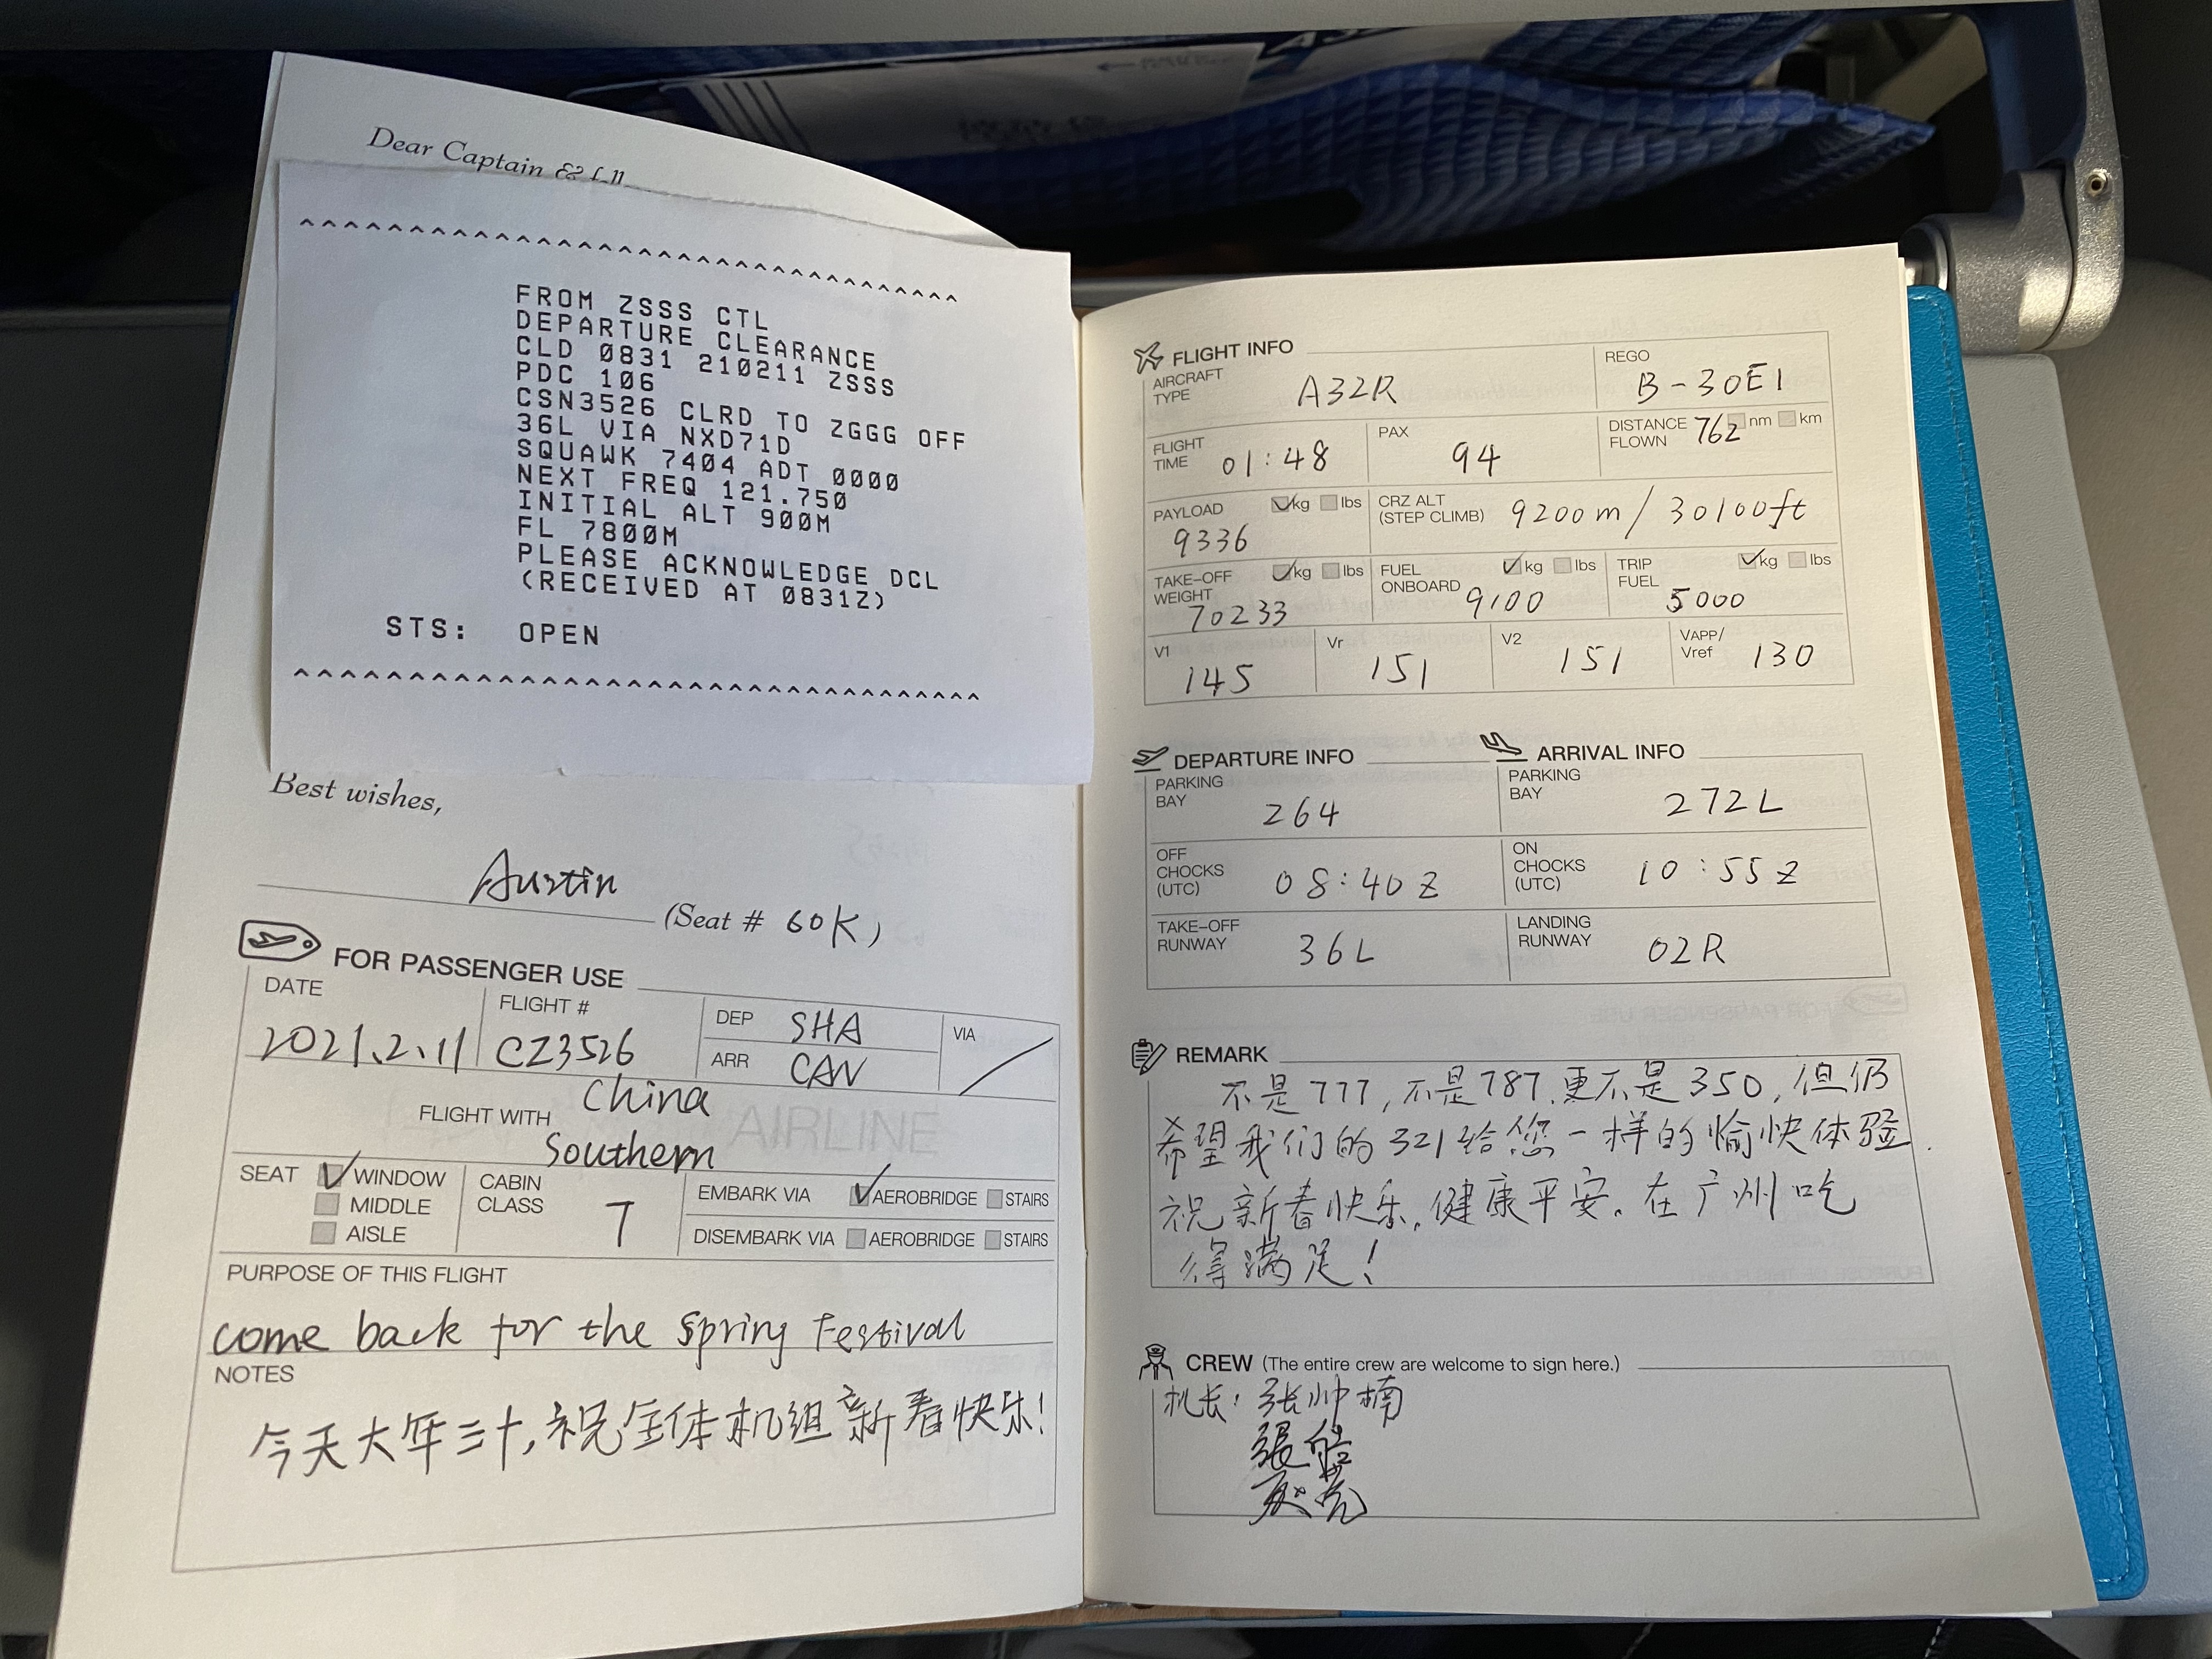 Dear Captain &
FROM ZSSS CTL
DEPARTURE CLEARANCE
CLD 0831 210211 ZSSS
PDC 106
CSN3526 CLRD TO ZGGG OFF
36L VIA NXD71D
SQUAWK 7404 ADT 0000
NEXT FREQ 121.750
INITIAL ALT 900M
FL 7800M
PLEASE ACKNOWLEDGE DCL
(RECEIVED AT 0831Z)
STS: OPEN
Best wishes,
Austin
(Seat # 60K)
FOR PASSENGER USE
DATE 2021.2.11
FLIGHT # CZ3526
DEP SHA
ARR CAN
VIA /
FLIGHT WITH China Southern
AIRLINE
SEAT WINDOW
MIDDLE
AISLE
CABIN CLASS T
EMBARK VIA AEROBRIDGE STAIRS
DISEMBARK VIA AEROBRIDGE STAIRS
PURPOSE OF THIS FLIGHT
come back for the Spring Festival
NOTES
今天大年三十,祝全体机组新春快乐!
FLIGHT INFO
AIRCRAFT TYPE A32R
REGO B-30E1
FLIGHT TIME 01:48
PAX 94
DISTANCE FLOWN 762 nm km
PAYLOAD kg lbs 9336
CRZ ALT (STEP CLIMB) 9200m / 30100ft
TAKE-OFF WEIGHT kg lbs 70233
FUEL ONBOARD kg lbs 9100
TRIP FUEL kg lbs 5000
V1 145
Vr 151
V2 151
VAPP/Vref 130
DEPARTURE INFO
ARRIVAL INFO
PARKING BAY 264
PARKING BAY 272L
OFF CHOCKS (UTC) 08:40Z
ON CHOCKS (UTC) 10:55Z
TAKE-OFF RUNWAY 36L
LANDING RUNWAY 02R
REMARK
不是777,不是787.更不是350,但仍
希望我们的321给您一样的愉快体验.
祝新春快乐,健康平安.在广州吃
得满足!
CREW (The entire crew are welcome to sign here.)
机长:张帅楠